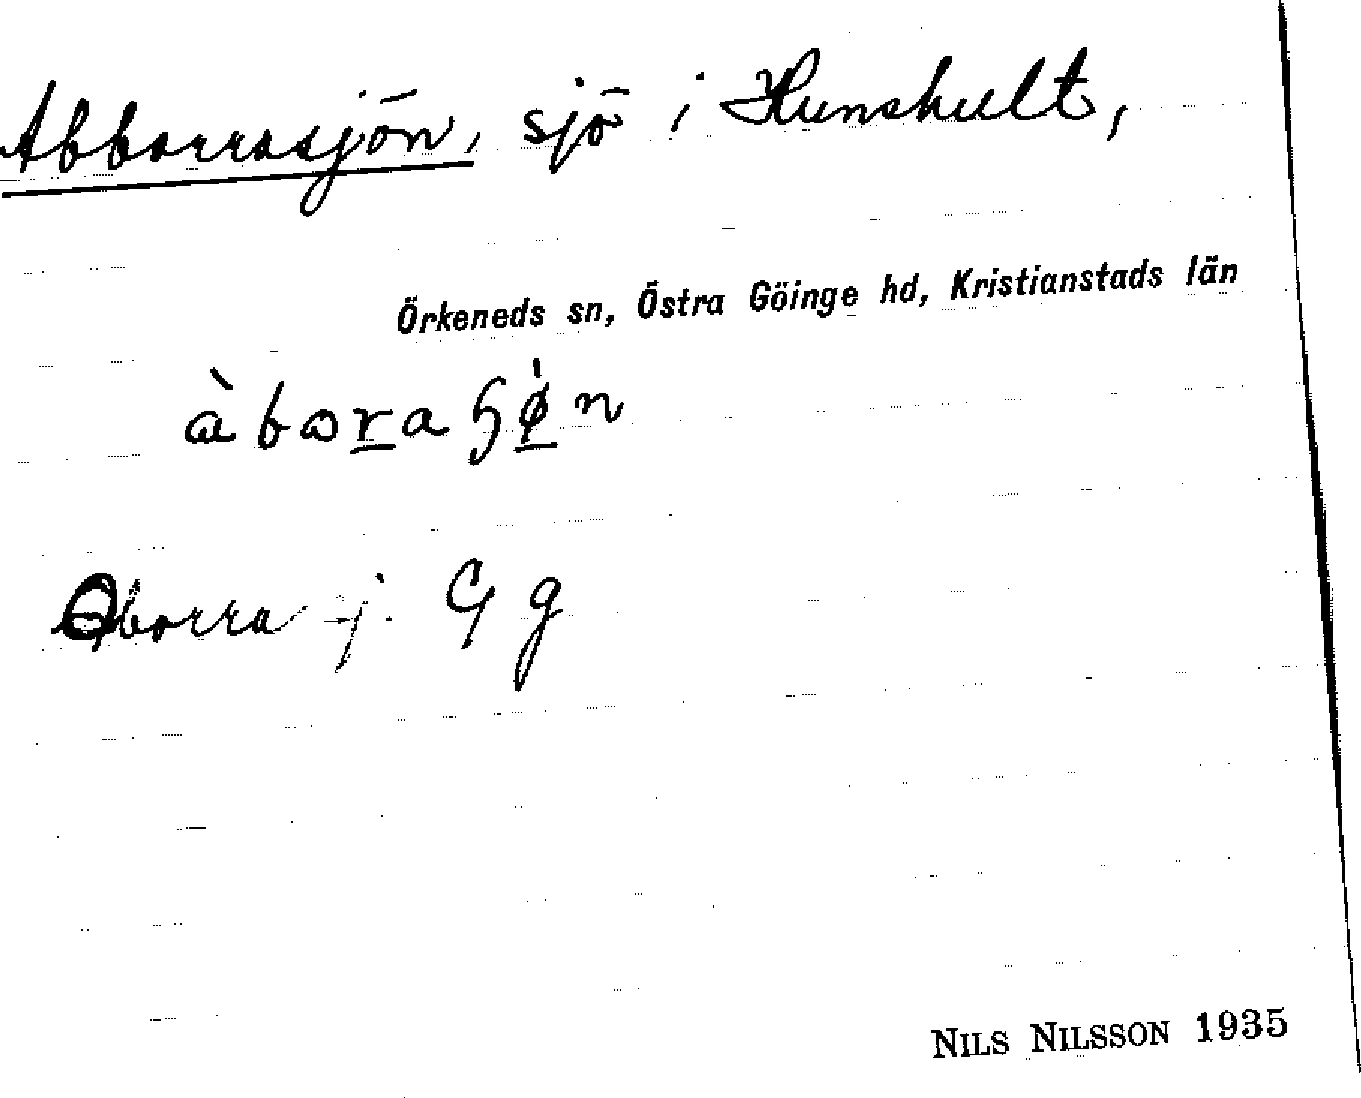 Abborrasjön, sjö i Hunshult,
Örkeneds sn, Östra Göinge hd, Kristianstads län
àbɷraɧø̀n
Aborra sj. G g
NILS NILSSON 1935